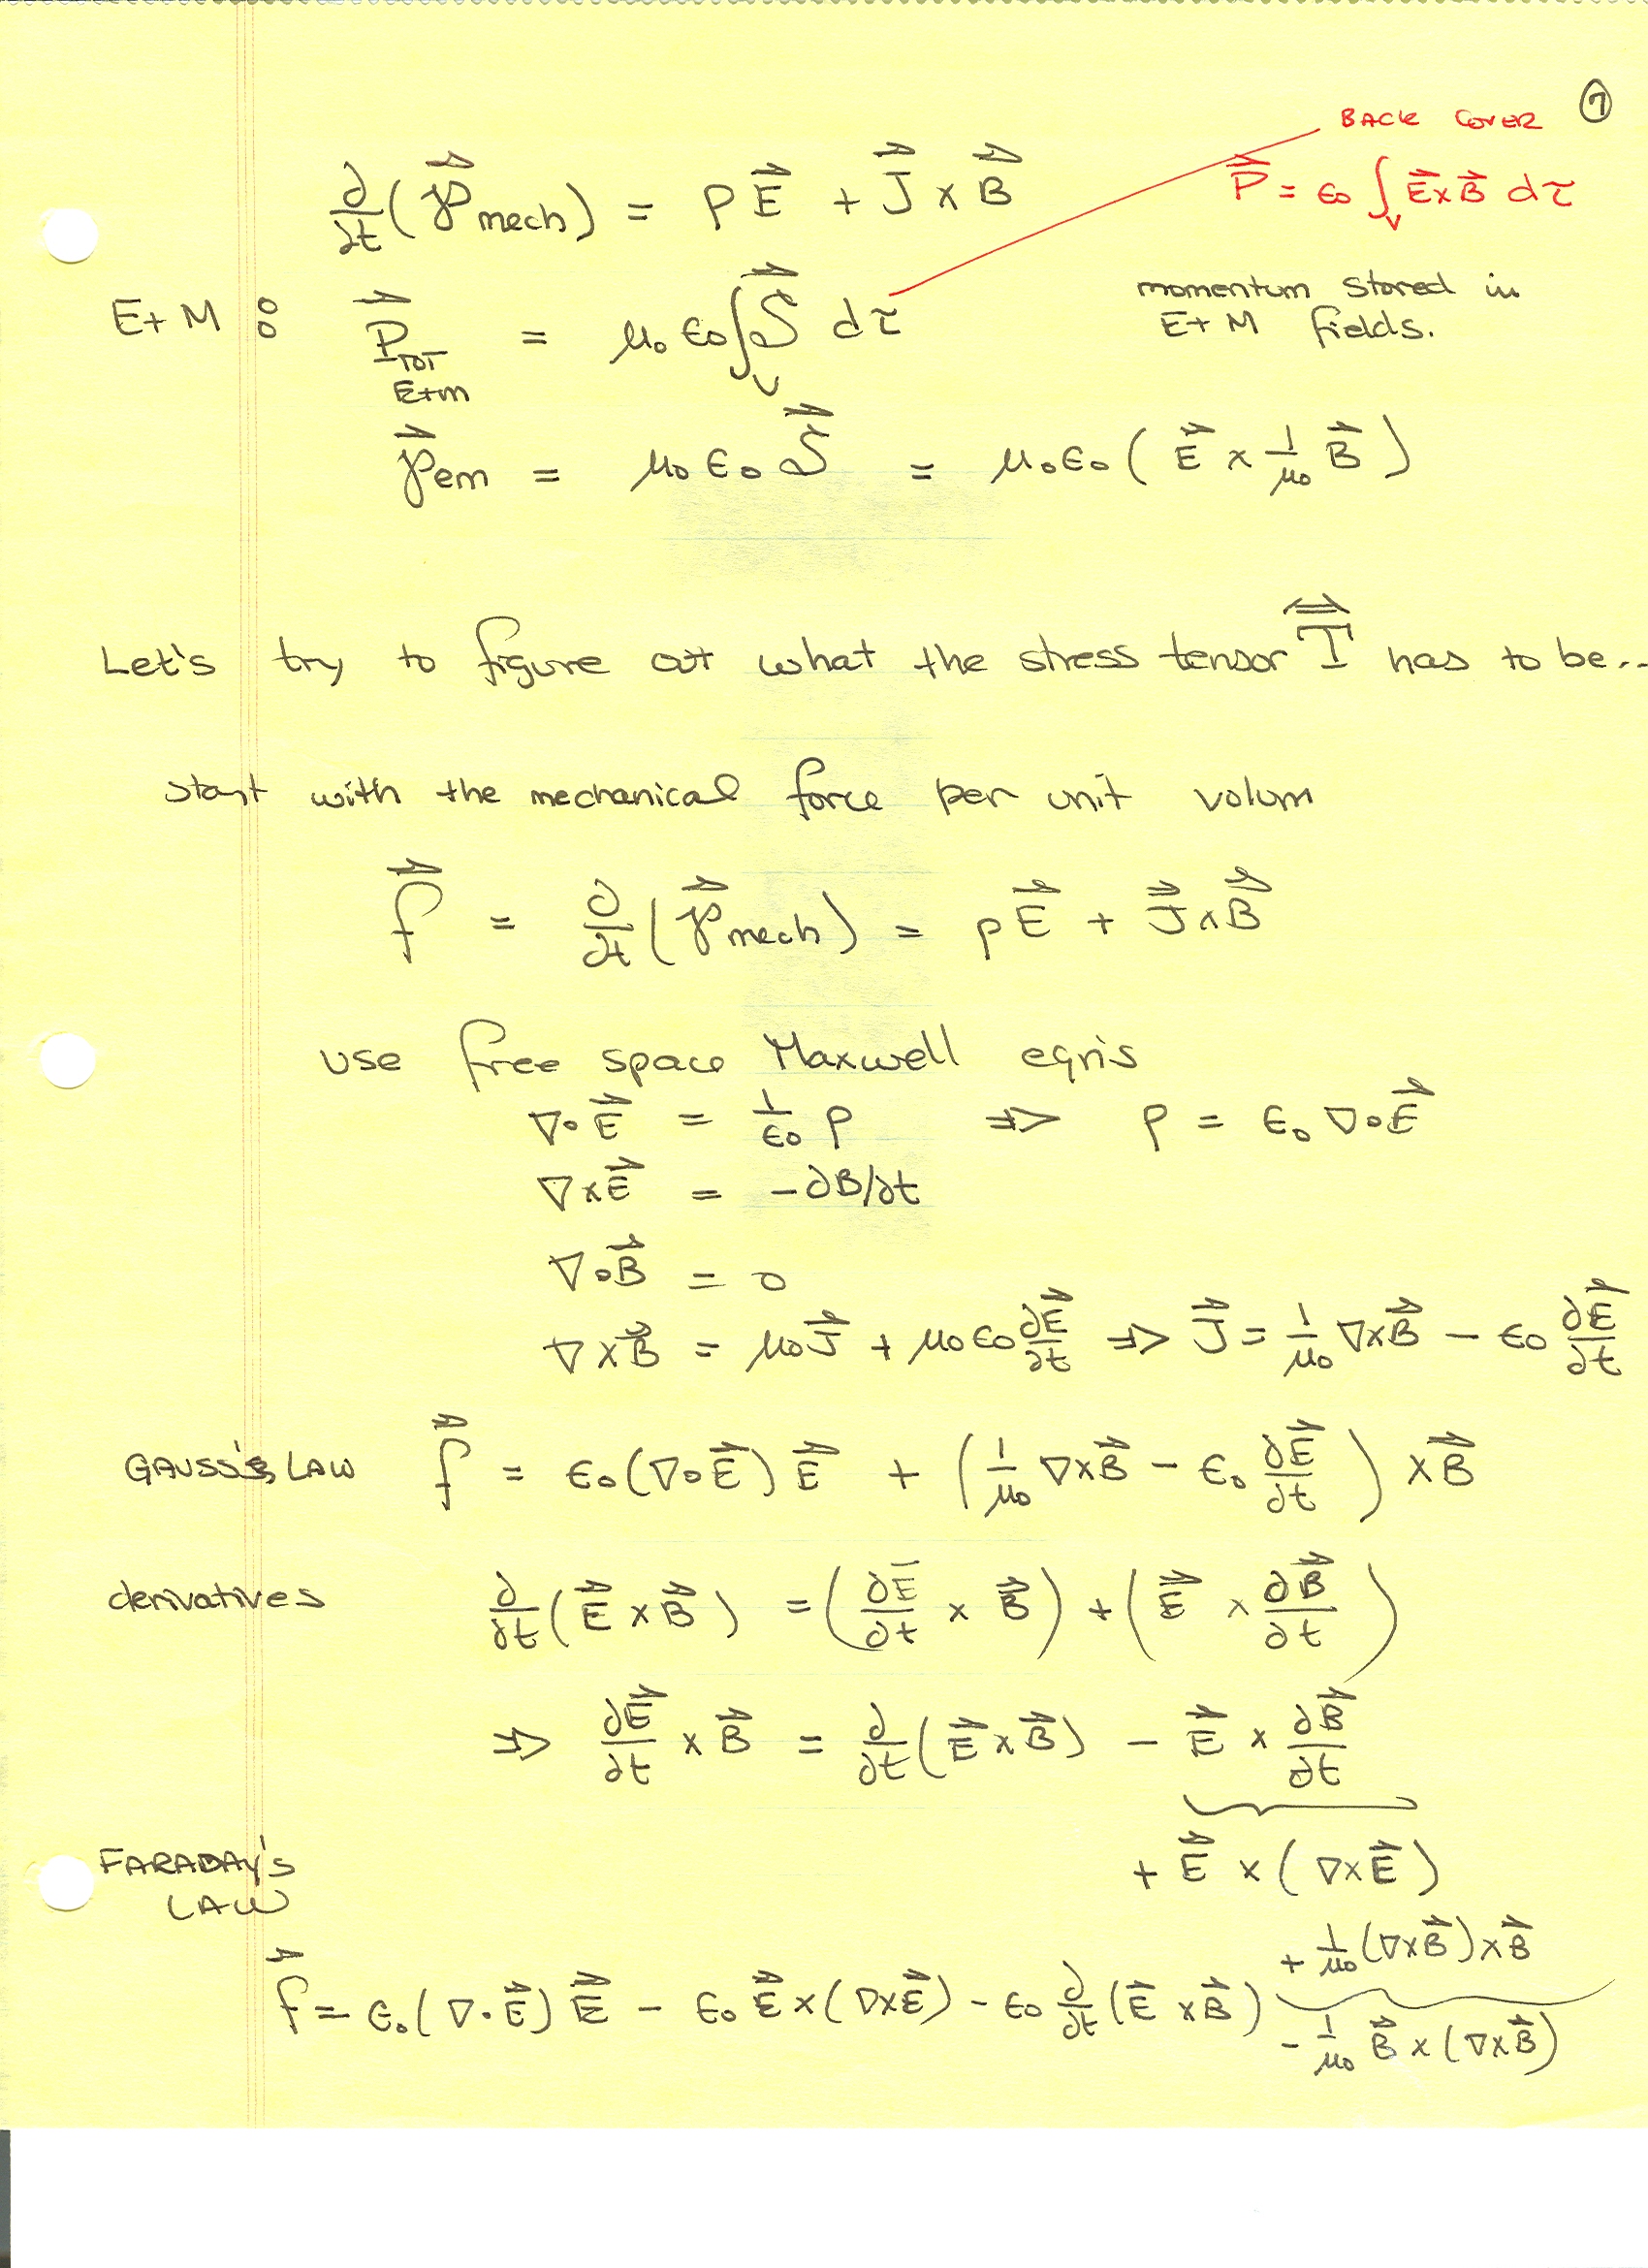 BACK COVER ⑦
∂/∂t (𝓅⃗ mech) = ρE⃗ + J⃗ × B⃗
P⃗ = ε₀ ∫_V E⃗×B⃗ dτ
E+M : P⃗_TOT E+m = μ₀ ε₀ ∫_V S⃗ dτ
momentum stored in
E+M fields.
𝓅⃗em = μ₀ ε₀ S⃗ = μ₀ε₀ ( E⃗ × 1/μ₀ B⃗ )
Let's try to figure out what the stress tensor T⃡ has to be...
start with the mechanical force per unit volum
f⃗ = ∂/∂t (𝓅⃗ mech) = ρE⃗ + J⃗×B⃗
use free space Maxwell eqn's
∇∘E⃗ = 1/ε₀ ρ ⇒ ρ = ε₀ ∇∘E⃗
∇×E⃗ = -∂B/∂t
∇∘B⃗ = 0
∇×B⃗ = μ₀J⃗ + μ₀ε₀ ∂E⃗/∂t ⇒ J⃗ = 1/μ₀ ∇×B⃗ - ε₀ ∂E⃗/∂t
GAUSS'S LAW f⃗ = ε₀(∇∘E⃗) E⃗ + ( 1/μ₀ ∇×B⃗ - ε₀ ∂E⃗/∂t ) ×B⃗
derivatives ∂/∂t (E⃗ × B⃗) = ( ∂E̅/∂t × B⃗ ) + ( E⃗ × ∂B⃗/∂t )
⇒ ∂E⃗/∂t × B⃗ = ∂/∂t (E⃗×B⃗) - E⃗ × ∂B⃗/∂t
FARADAY'S + E⃗ × ( ∇×E⃗ )
LAW
f⃗ = ε₀( ∇·E⃗ ) E⃗ - ε₀ E⃗×( ∇×E⃗ ) - ε₀ ∂/∂t (E⃗ × B⃗) + 1/μ₀ (∇×B⃗)×B⃗
- 1/μ₀ B⃗ × ( ∇×B⃗ )